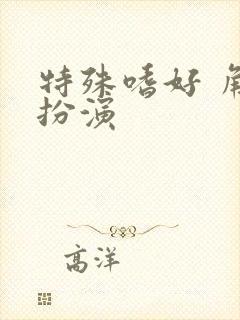 特殊嗜好 角
扮演
高洋